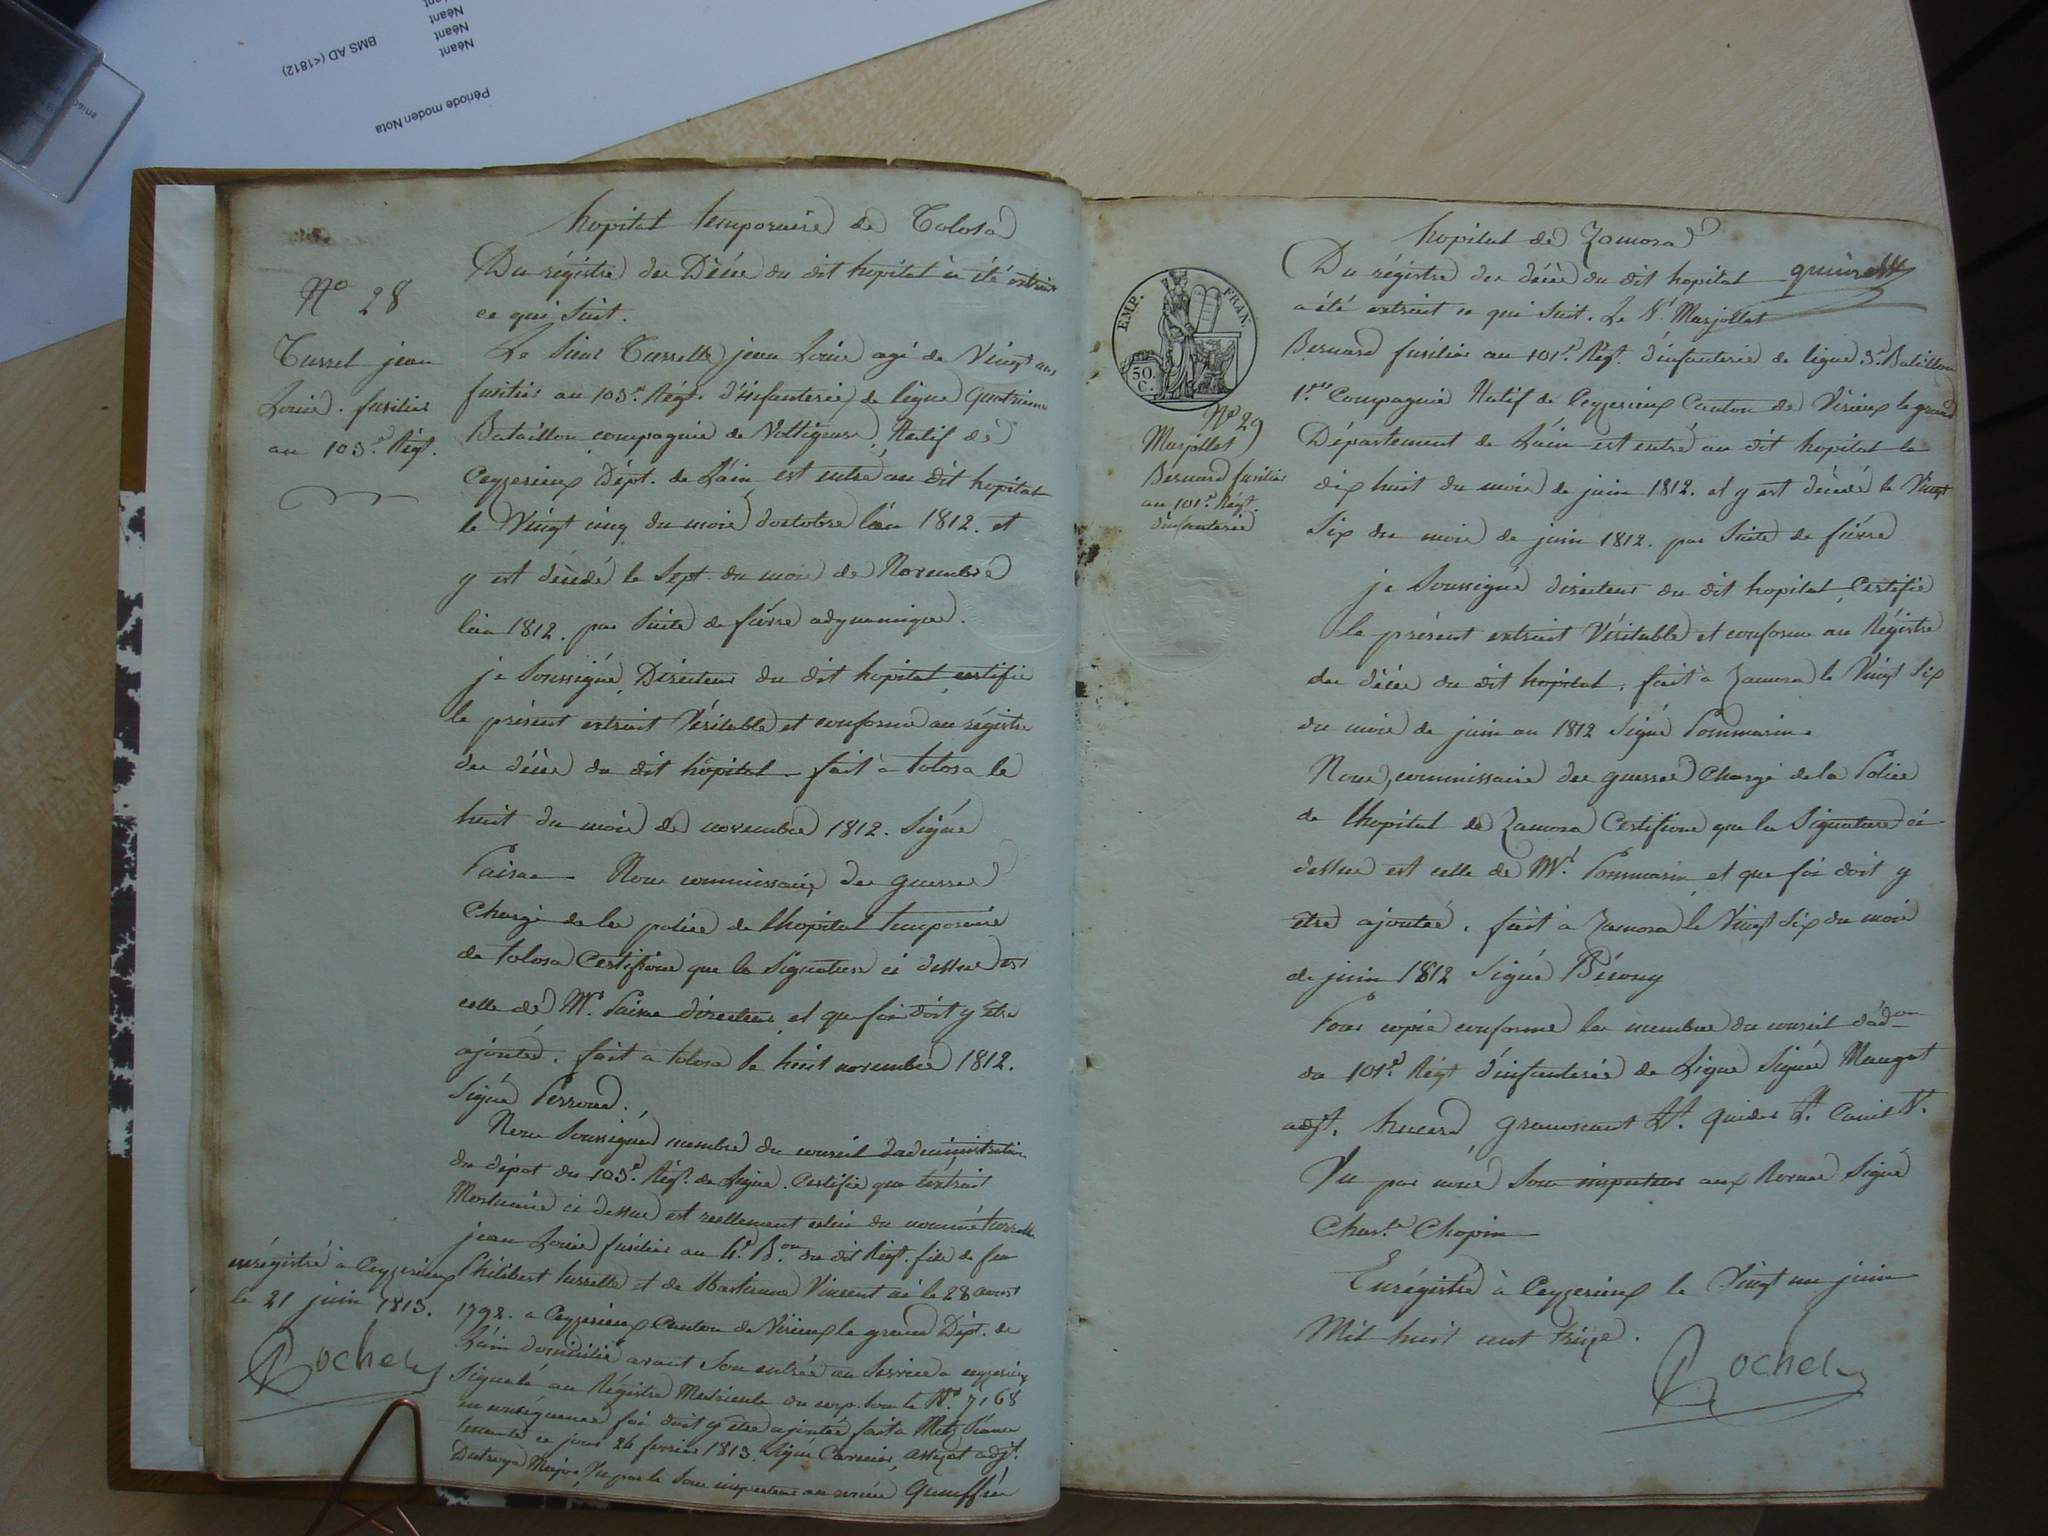 Néant
Néant
Néant
BMS AD (<1812)
Période moden Nota
hopital temporaire de Tolosa
Nº 28
Turrel jean
Louis. fusilier
au 103.e Régt.
Du régistre des Décès du dit hopital à été extrait
ce qui suit.
Le Sieur Turrelle jean Louis agé de Vingt ans
fusilier au 103.e Régt. d'infanterie de ligne quatrieme
Bataillon compagnie de Voltigeurs, Natif de
Ceyzerieux Dépt. de Lain est entré au dit hopital
le Vingt cinq du mois d'octobre l'an 1812. et
y est décédé le Sept du mois de Novembre
l'an 1812. par Suite de fiévre adynamique.
je Soussigné, Directeur du dit hopital certifie
le présent extrait Véritable et conforme au régistre
des décès du dit hôpital fait à tolosa le
huit du mois de novembre 1812. Signé
Nous commissaire des guerres
Chargé de la police de lhopital temporaire
de tolosa Certifions que la Signature ci dessus est
celle de Mr. directeur et que foi doit y être
ajoutée. fait a tolosa le huit novembre 1812.
Signé Perroud.
Nous Soussignés membres du conseil dadministration
du dépot du 103.e Régt. de Ligne. Certifie que l'extrait
Mortuaire ci dessus est reellement celui du nommé turrelle
jean Louis fusilier au 4.e Bon. du dit Régt. fils de feu
Philibert turrelle et de Vincent né le 28 aoust
1792. a Ceyzerieux Canton de Virieux le grand Dépt. de
Lain domicilié avant Son entrée au Service a ceyzerieux
Signalé au Régistre Matricule du corps sous le Nº 7168
en conséquence foi doit y être ajoutée fait à Metz Séance
tenante ce jour 24 fevrier 1813. Signé adjt.
Major, Vu par le Sous inspecteur aux revues
enrégistré à Ceyzerieux
le 21 juin 1813.
Rochel
hopital de Zamora
EMP. FRAN.
50.
C.
Nº 29
Marjollet
Bernard fusilier
au 101.e Régt.
d'infanterie
Du régistre des décès du dit hopital
a été extrait ce qui suit. Le Sr. Marjollet
Bernard fusilier au 101.e Régt. d'infanterie de ligne 3.e Bataillon
1.re Compagnie Natif de Ceyzerieux Canton de Virieux le grand
Département de Lain est entré au dit hopital le
dix huit du mois de juin 1812. et y est décédé le Vingt
Six du mois de juin 1812. par Suite de fiévre
je Soussigné directeur du dit hopital Certifie
le présent extrait Véritable et conforme au Régistre
des décès du dit hopital. fait à Zamora le Vingt Six
du mois de juin an 1812 Signé Pommarin.
Nous, commissaire des guerres Chargé de la Police
de lhopital de Zamora Certifions que la Signature ci
dessus est celle de Mr. Pommarin et que foi doit y
être ajoutée. fait à Zamora le Vingt Six du mois
de juin 1812 Signé
Pour copie conforme les membres du conseil dadon
du 101.e Régt d'infanterie de Ligne Signés Maugat
adjt.
Vu par nous Sous inspecteur aux Revues Signé
Chopin
Enrégistré à Ceyzerieux le Vingt un juin
Mil huit cent treize.
Rochel